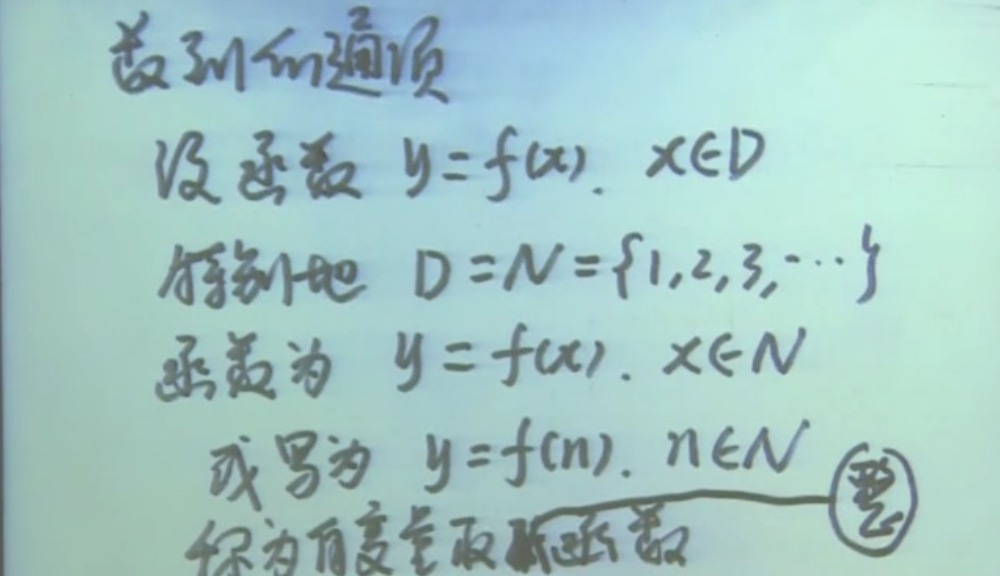 数列的通项
设函数 y=f(x). x∈D
特别地 D=N={1,2,3,…}
函数为 y=f(x). x∈N
或写为 y=f(n). n∈N
整
称为自变量取函数